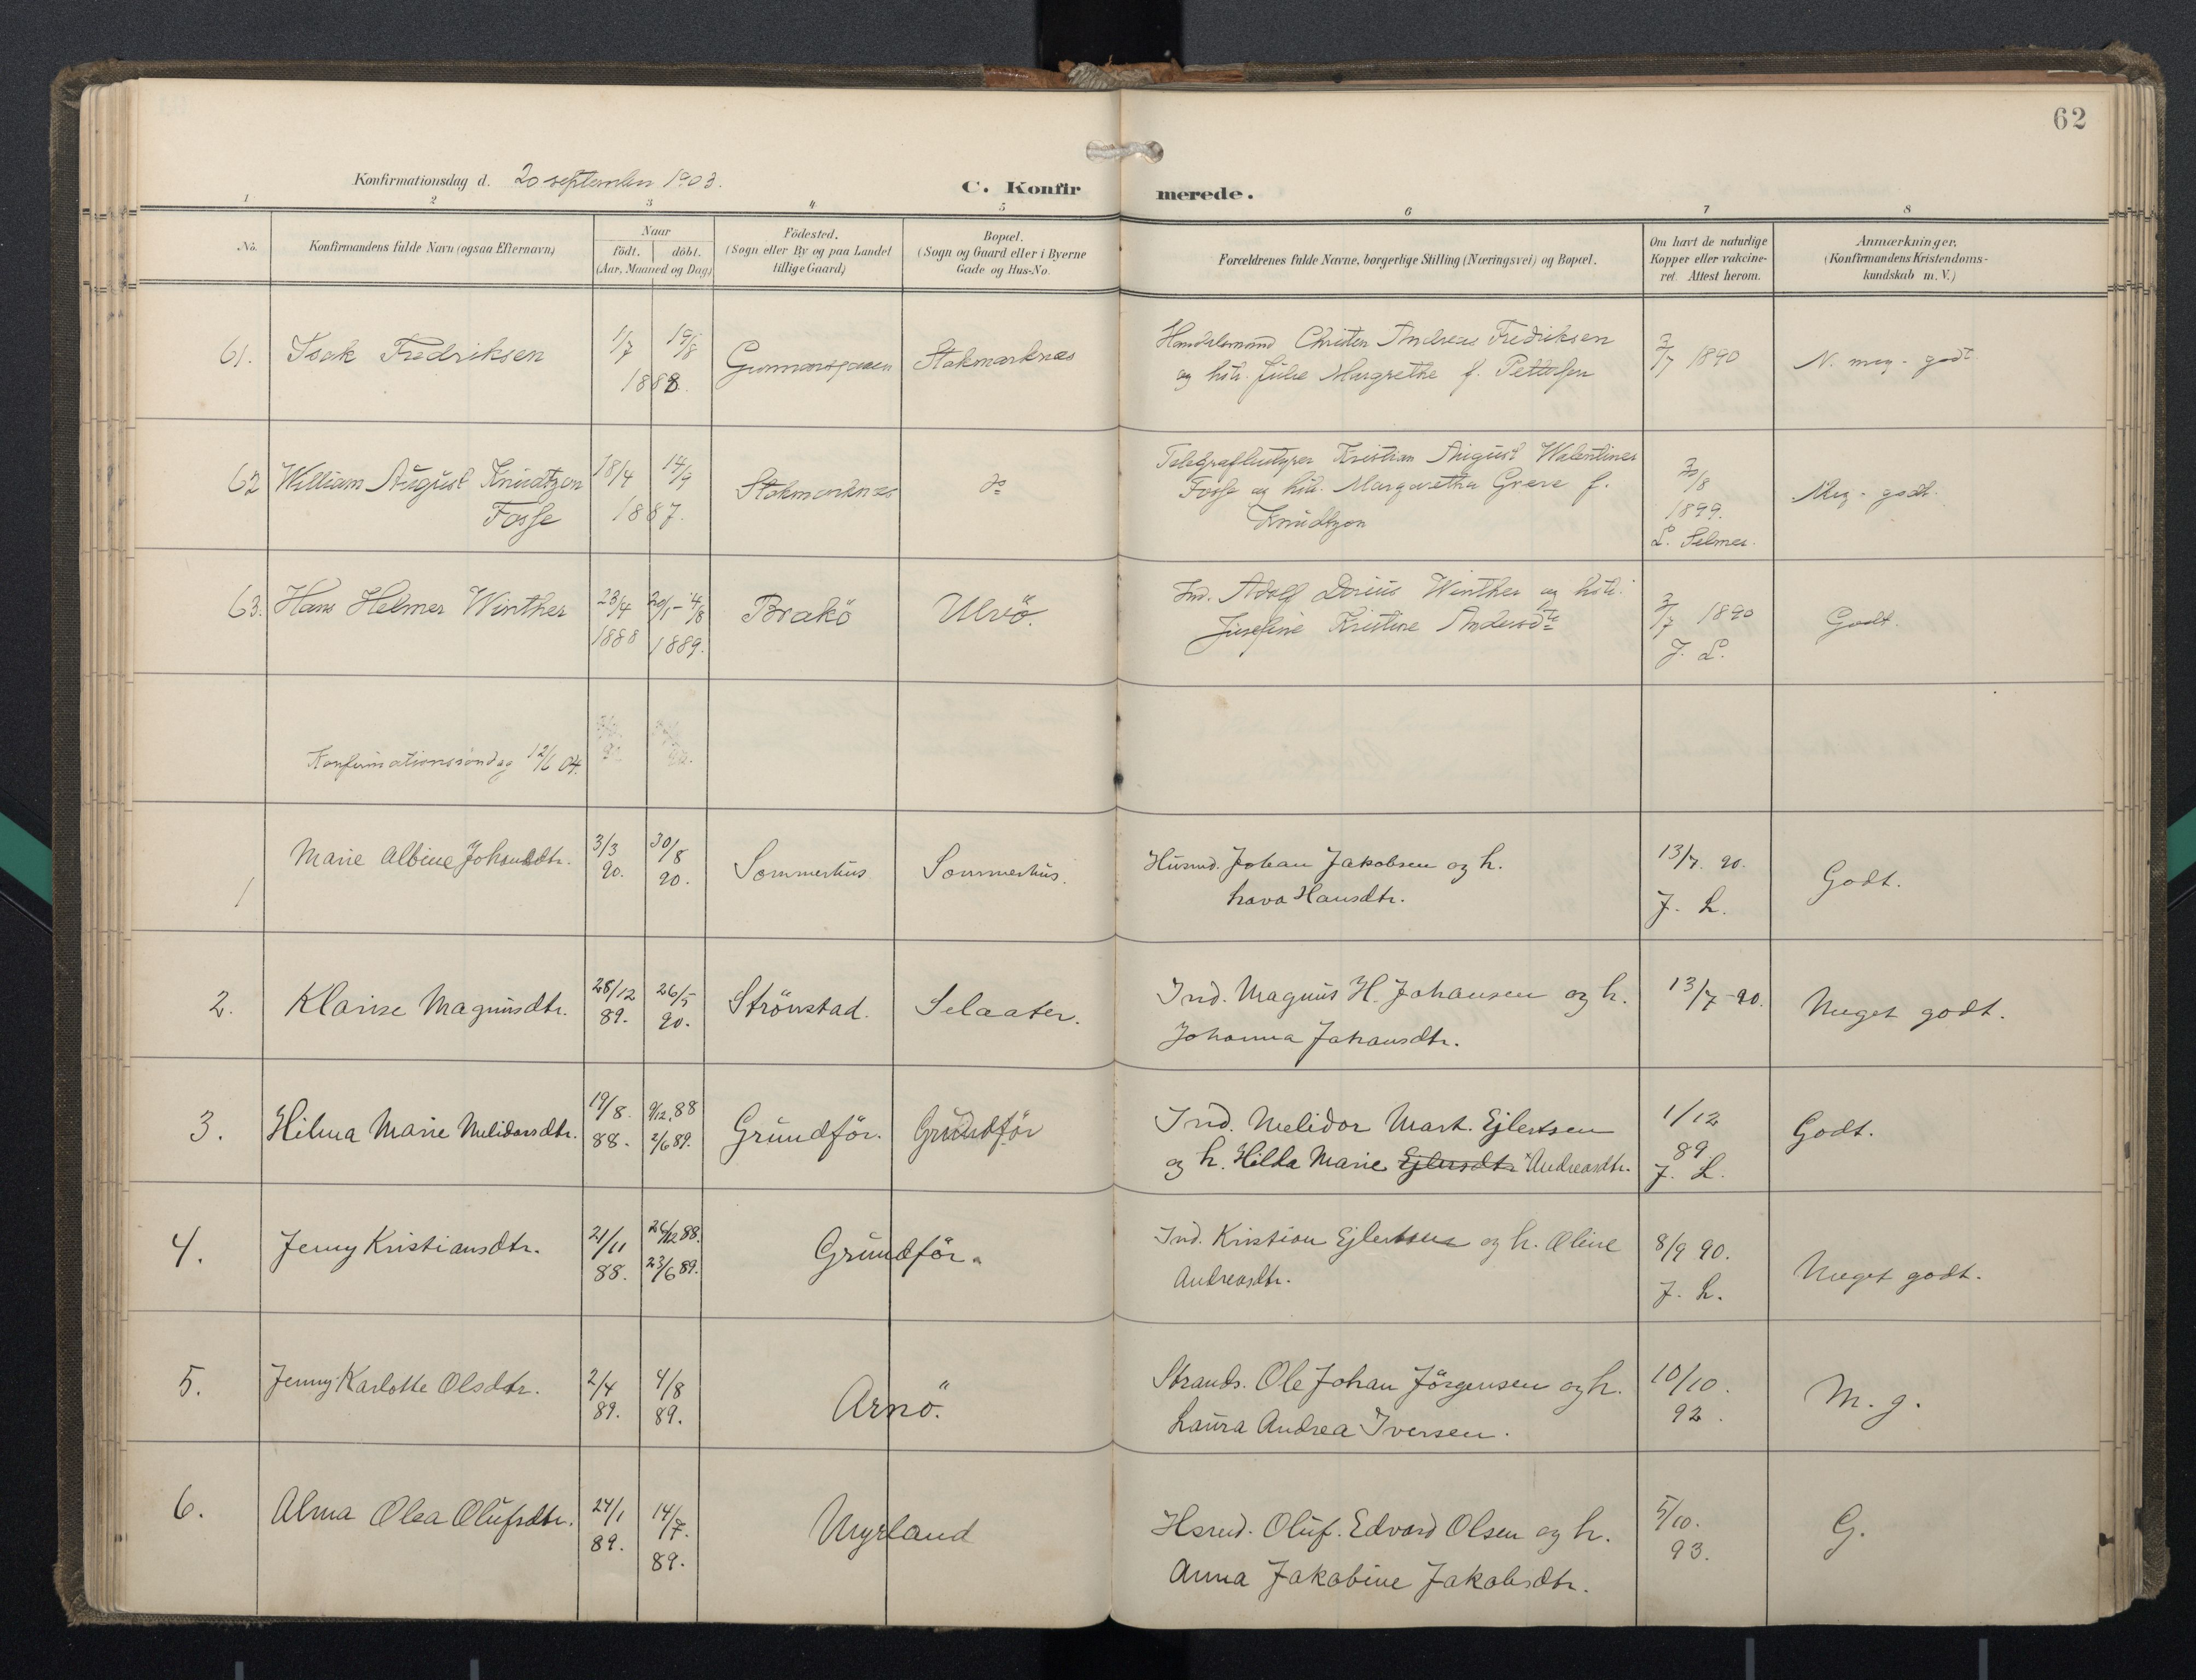 62
Konfirmationsdag d. 20 september 1903.
C. Konfirmerede.
1 2 3 4 5 6 7 8
No.
Konfirmandens fulde Navn (ogsaa Efternavn)
Naar
födt. döbt.
(Aar, Maaned og Dag)
Födested.
(Sogn eller By og paa Landet
tillige Gaard)
Bopæl.
(Sogn og Gaard eller i Byerne
Gade og Hus-No.
Forældrenes fulde Navne, borgerlige Stilling (Næringsvei) og Bopæl.
Om havt de naturlige
Kopper eller vakcine-
ret. Attest herom.
Anmærkninger.
(Konfirmandens Kristendoms-
kundskab m. V.)
61. Isak Fredriksen 1/7 15/8 1888 Stokmarknæs
Handelsmand Christen Andreas Fredriksen
og hstr. Julie Margrethe f. Pettersen
3/7 1890
N. meg. godt
62 William August Knudtzon
Fosse
18/4 14/9
1887.
Stokmarknæs do
Telegrafbestyrer Kristian August Walentiner
Fosse og hstr. Margaretha Greve f.
Knudtzon
30/8
1899.
L. Selmer.
Meg. godt.
63. Hans Helmer Winther 23/4 1888 20/1 - 4/8 1889. Brakö Ulvö.
Ind. Adolf Dorius Winther og hstr.
Josefine Kristine Andersdtr
3/7 1890
J. L.
Godt.
Konfirmationssöndag 12/6 04.
1 Marie Albine Johansdtr. 3/3 90. 30/8 90. Sommerhus Sommerhus.
Husmd. Johan Jakobsen og h.
Lava Hansdtr.
13/7. 90.
J. L.
Godt.
2. Klarise Magnusdtr. 28/12 89. 26/5 90. Strönstad. Selaater.
Ind. Magnus H. Johansen og h.
Johanna Johansdtr.
13/7 - 90.
Meget godt.
3. Hilma Marie Melidorsdtr. 19/8. 88. 9/12. 88 2/6 89. Grundför. Grundför
Ind. Melidor Mart. Ejlertsen
og h. Hilda Marie Ejlersdtr Andreasdtr.
1/12
89.
J. L.
Godt.
4. Jenny Kristiansdtr. 21/11 88. 26/12 88. 23/6 89. Grundför.
Ind. Kristian Ejlertsen og h. Oline
Andreasdtr.
8/9 90.
J. L.
Meget godt.
5. Jenny Karlotte Olsdtr. 2/4 89. 4/8 89. Arnö.
Strands. Ole Johan Jörgensen og h.
Laura Andrea Iversen.
10/10.
92.
M. g.
6. Alma Olea Olufsdtr. 24/1 89. 14/7. 89. Myrland
Hsmd. Oluf. Edvard Olsen og h.
Anna Jakobine Jakobsdtr.
5/10.
93.
G.